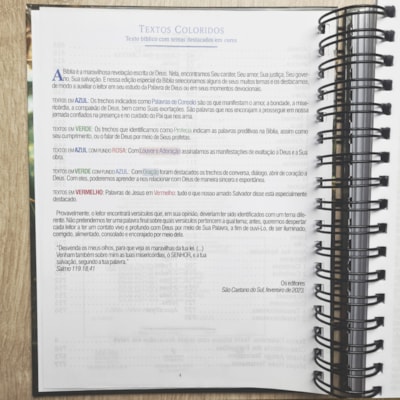 TEXTOS COLORIDOS
Texto bíblico com temas destacados em cores
A Bíblia é a maravilhosa revelação escrita de Deus. Nela, encontramos Seu caráter, Seu amor, Sua justiça, Seu gover-
no, Sua salvação. E nessa edição especial da Bíblia selecionamos alguns de seus muitos temas e os destacamos,
de modo a auxiliar o leitor em seu estudo da Palavra de Deus ou em seus momentos devocionais.
TEXTOS EM AZUL: Os trechos indicados como Palavras de Consolo são os que manifestam o amor, a bondade, a mise-
ricórdia, a compaixão de Deus, bem como Suas exortações. São palavras que nos encorajam a prosseguir em nossa
jornada confiados na presença e no cuidado do Pai que nos ama.
TEXTOS EM VERDE: Os trechos que identificamos como Profecia, indicam as palavras proféticas na Bíblia, assim como
seu cumprimento, ou o falar de Deus por meio de Seus profetas.
TEXTOS EM AZUL COM FUNDO ROSA: Com Louvor e Adoração assinalamos as manifestações de exaltação a Deus e à Sua
obra.
TEXTOS EM VERDE COM FUNDO AZUL: Com Oração foram destacados os trechos de conversa, diálogo, abrir de coração a
Deus. Com isso, poderemos aprender a nos relacionar com Deus de maneira sincera e espontânea.
TEXTOS EM VERMELHO: Palavras de Jesus em Vermelho: tudo o que nosso amado Salvador disse está especialmente
destacado.
Provavelmente, o leitor encontrará versículos que, em sua opinião, deveriam ter sido identificados com um tema dife-
rente. Não pretendemos ter uma palavra final sobre quais versículos pertencem a qual tema; antes, queremos despertar
cada leitor a ter um contato vivo e profundo com Deus por meio de Sua Palavra, a fim de ouvi-Lo, de ser iluminado,
corrigido, alimentado, consolado e encorajado por meio dela.
"Desvenda os meus olhos, para que veja as maravilhas da tua lei. (...)
Venham também sobre mim as tuas misericórdias, ó SENHOR, e a tua
salvação, segundo a tua palavra."
Salmo 119.18,41
Os editores
São Caetano do Sul, fevereiro de 2023.